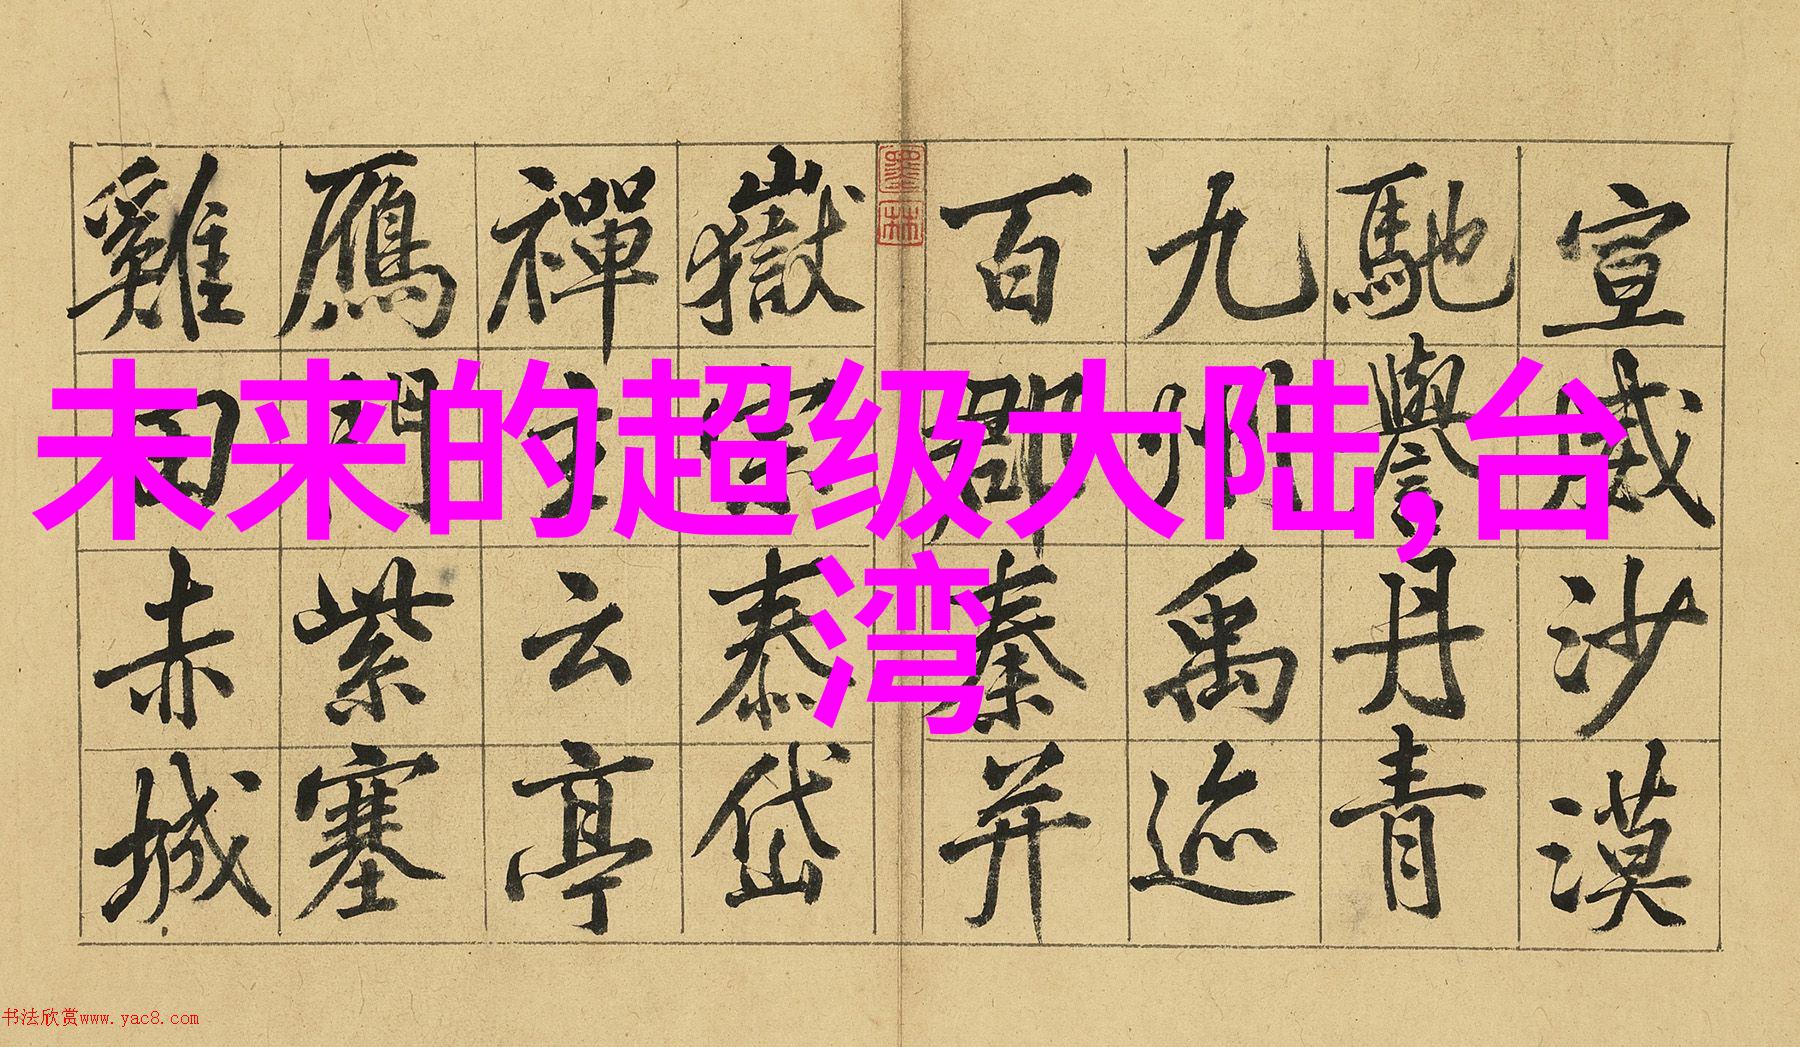 未来的超级大陆,台
湾
宣威沙漠
馳譽丹青
九州禹迹
百郡秦并
墨林
嶽宗泰岱
禪主云亭
鴈門紫塞
雞田赤城
书法欣赏www.yac8.com